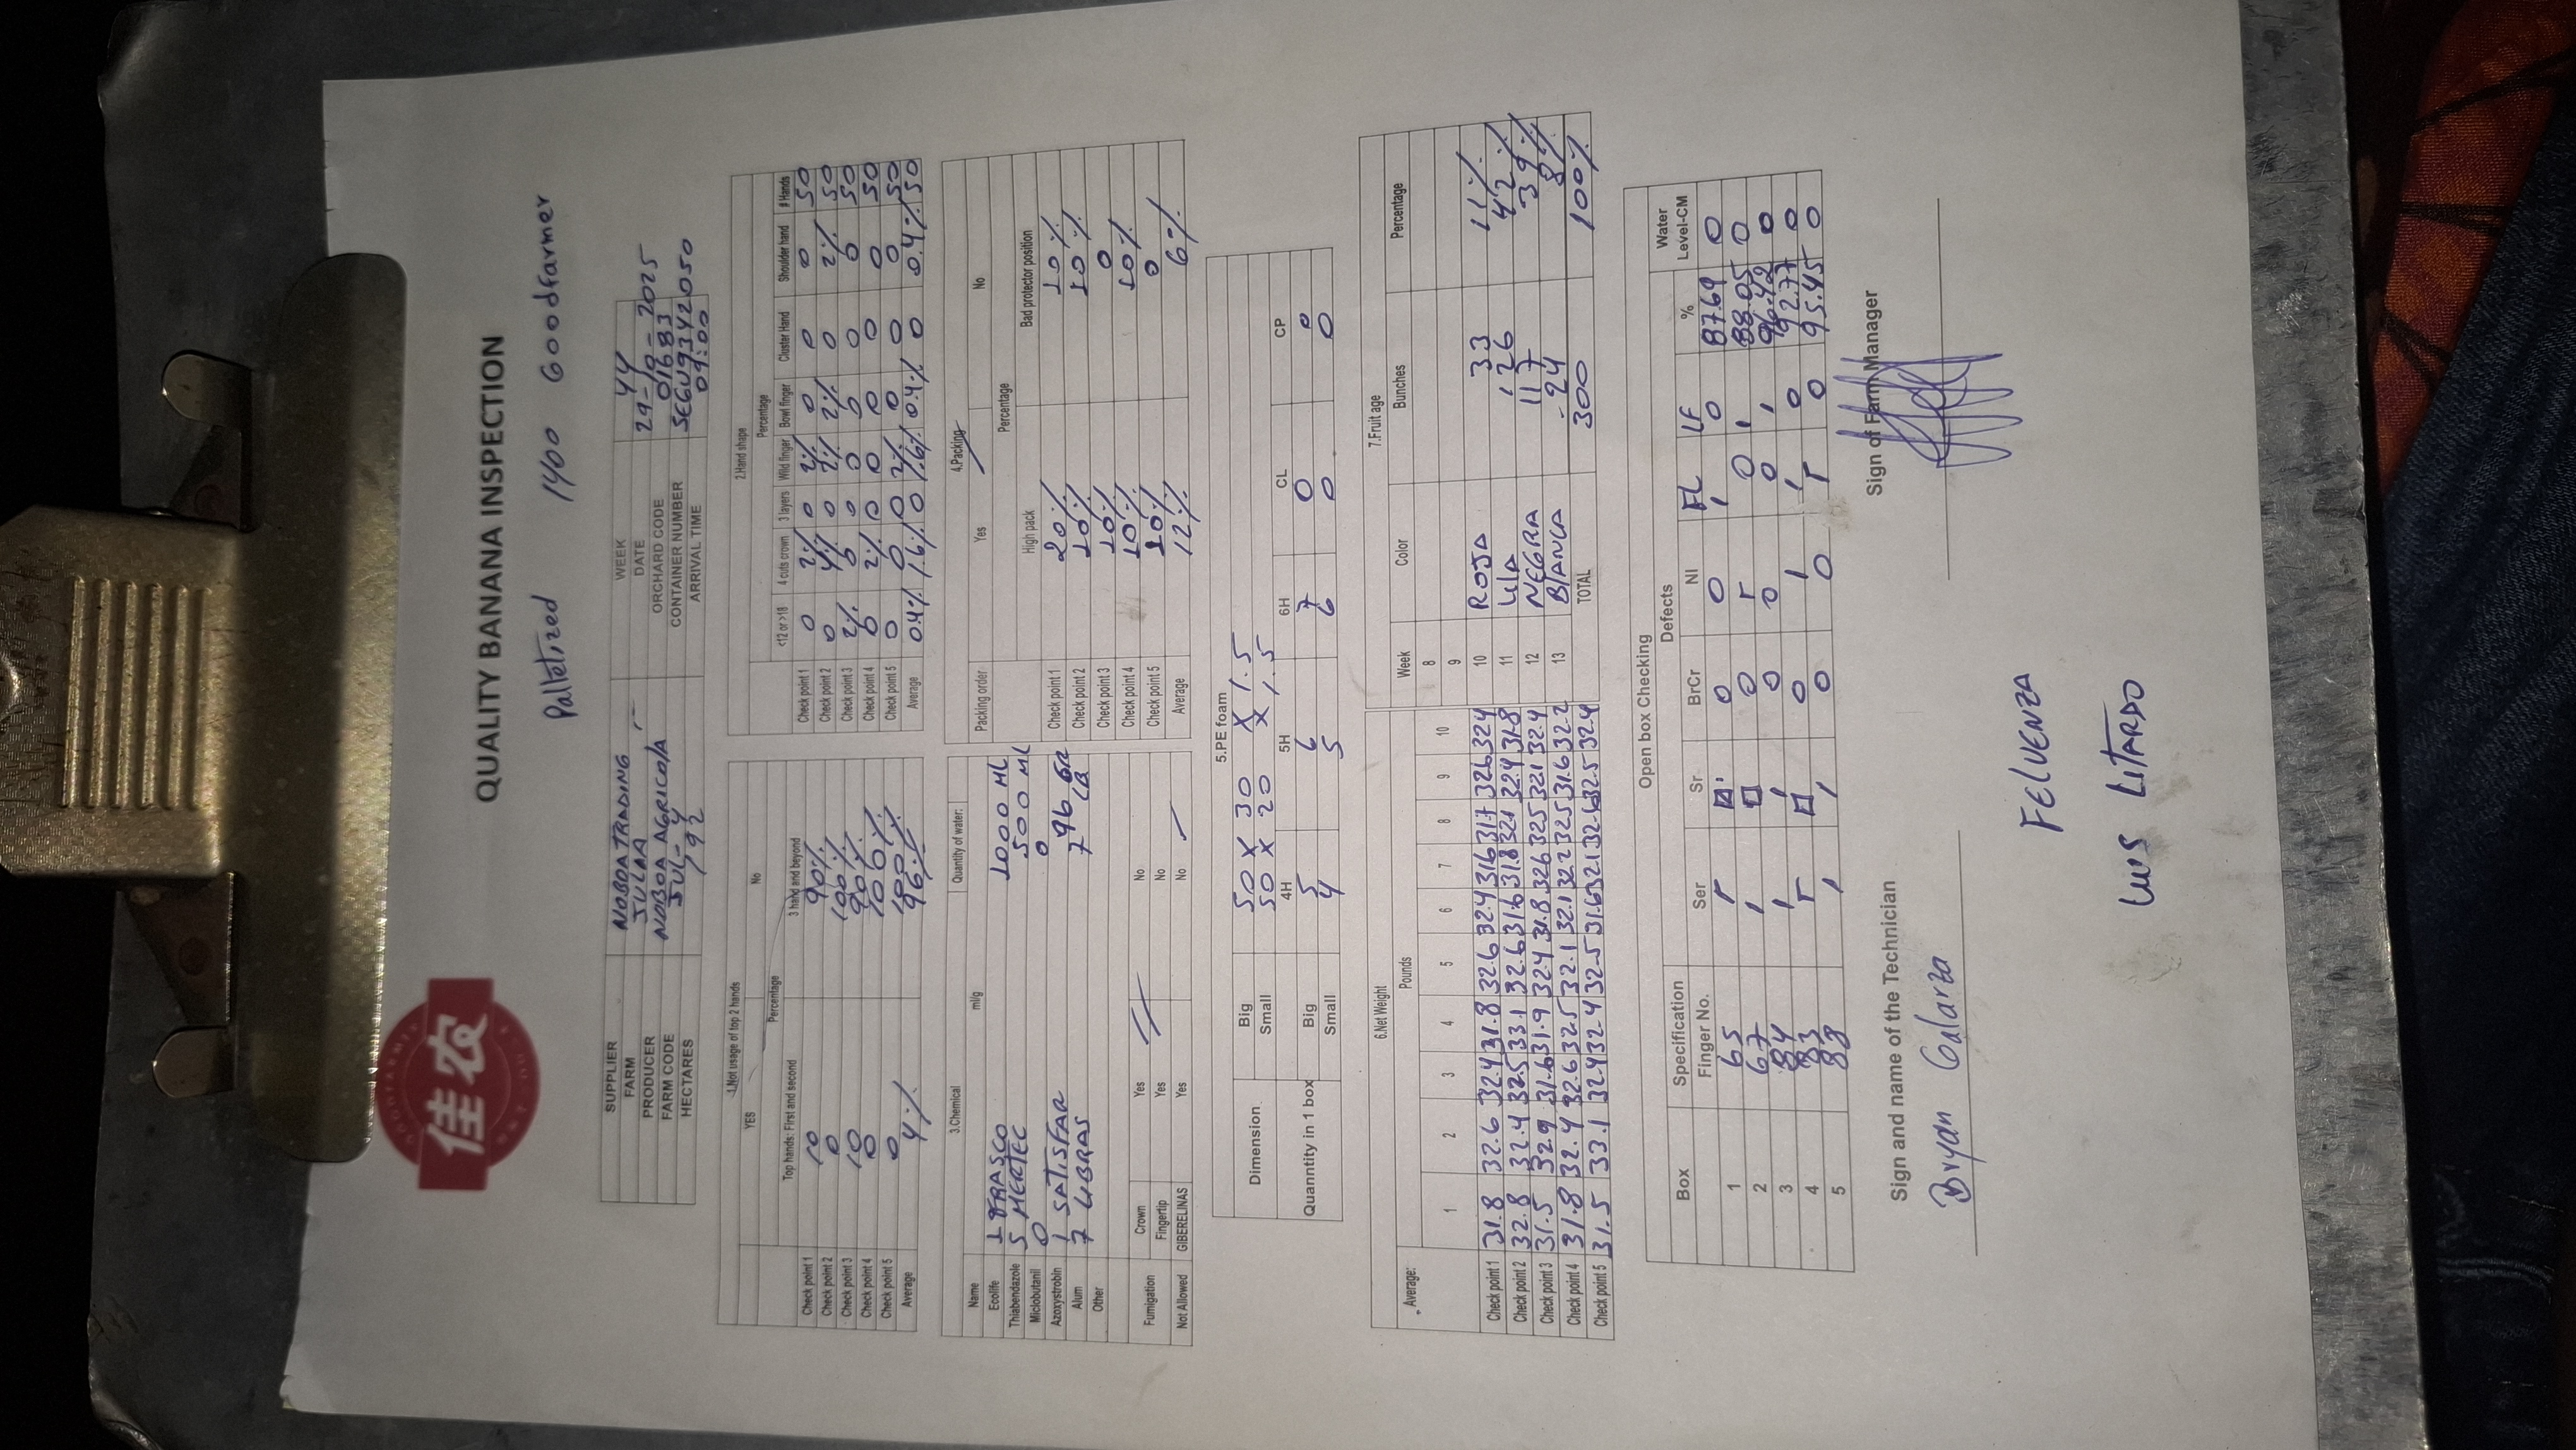 佳农
QUALITY BANANA INSPECTION
Palletized 1400 Goodfarmer
SUPPLIER NOBOA TRADING WEEK 44
FARM JULAA DATE 29-10-2025
PRODUCER NOBOA AGRICOLA ORCHARD CODE 01683
FARM CODE JUL-4 CONTAINER NUMBER SEGU9342050
HECTARES 192 ARRIVAL TIME 09:00
1.Not usage of top 2 hands
YES No
Percentage
Top hands: First and second 3 hand and beyond
Check point 1 10 90%
Check point 2 0 100%
Check point 3 10 90%
Check point 4 0 100%
Check point 5 0 100%
Average 4% 96%
2.Hand shape
Percentage
<12 or >18 4 cuts crown 3 layers Wild finger Bowl finger Cluster Hand Shoulder hand # Hands
Check point 1 0 2% 0 2% 0 0 0 50
Check point 2 0 4% 0 2% 2% 0 2% 50
Check point 3 2% 0 0 0 0 0 0 50
Check point 4 0 2% 0 0 0 0 0 50
Check point 5 0 0 0 2% 0 0 0 50
Average 0.4% 1.6% 0 1.6% 0.4% 0 0.4% 50
3.Chemical Quantity of water:
Name ml/g
Ecolife 1 FRASCO 1000 ML
Thiabendazole 5 MERTEC 500 ML
Miclobutanil 0 0
Azoxystrobin 1 SATISFAR 96 GR
Alum 7 LIBRAS 7 LB
Other
Fumigation Crown Yes No
Fingertip Yes No
Not Allowed GIBERELINAS Yes No
4.Packing
Packing order Yes No
Percentage
High pack Bad protector position
Check point 1 20% 10%
Check point 2 10% 10%
Check point 3 10% 0
Check point 4 10% 10%
Check point 5 10% 0
Average 12% 6%
5.PE foam
Dimension Big 50 X 30 X 1.5
Small 50 X 20 X 1.5
4H 5H 6H CL CP
Quanntity in 1 box Big 5 6 7 0 0
Small 4 5 6 0 0
6.Net Weight
Average: Pounds
1 2 3 4 5 6 7 8 9 10
Check point 1 31.8 32.6 32.4 31.8 32.6 32.4 31.6 31.7 32.6 32.4
Check point 2 32.8 32.4 32.5 33.1 32.6 31.6 31.8 32.1 32.4 31.8
Check point 3 31.5 32.9 31.6 31.9 32.4 31.8 32.6 32.5 32.1 32.4
Check point 4 31.8 32.4 32.6 32.5 32.1 32.1 32.2 32.5 31.6 32.2
Check point 5 31.5 33.1 32.4 32.4 32.5 31.6 32.1 32.6 32.5 32.4
7.Fruit age
Week Color Bunches Percentage
8
9
10 ROJA 33 11%
11 LILA 126 42%
12 NEGRA 117 39%
13 BLANCA 24 8%
TOTAL 300 100%
Open box Checking
Box Specification Defects Water
Finger No. Ser Sr BrCr NI FL LF % Level-CM
1 65 0 0 1 0 87.69 0
2 67 1 0 0 1 88.05 0
3 84 1 1 0 0 0 1 96.42 0
4 83 0 1 1 0 92.77 0
5 88 1 1 0 0 0 95.45 0
Sign and name of the Technician Sign of Farm Manager
Bryan Galarza
FELVENZA
LUIS LITARDO